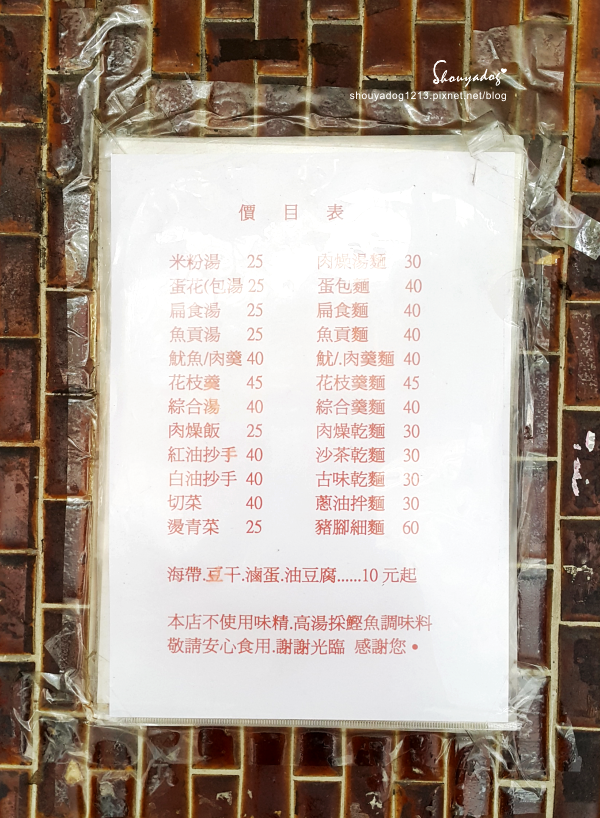 Shouyadog
shouyadog1213.pixnet.net/blog
價 目 表
米粉湯 25 肉燥湯麵 30
蛋花(包湯 25 蛋包麵 40
扁食湯 25 扁食麵 40
魚貢湯 25 魚貢麵 40
魷魚/肉羹 40 魷/.肉羹麵 40
花枝羹 45 花枝羹麵 45
綜合湯 40 綜合羹麵 40
肉燥飯 25 肉燥乾麵 30
紅油抄手 40 沙茶乾麵 30
白油抄手 40 古味乾麵 30
切菜 40 蔥油拌麵 30
燙青菜 25 豬腳細麵 60
海帶.豆干.滷蛋.油豆腐......10 元起
本店不使用味精.高湯採鰹魚調味料
敬請安心食用.謝謝光臨 感謝您•